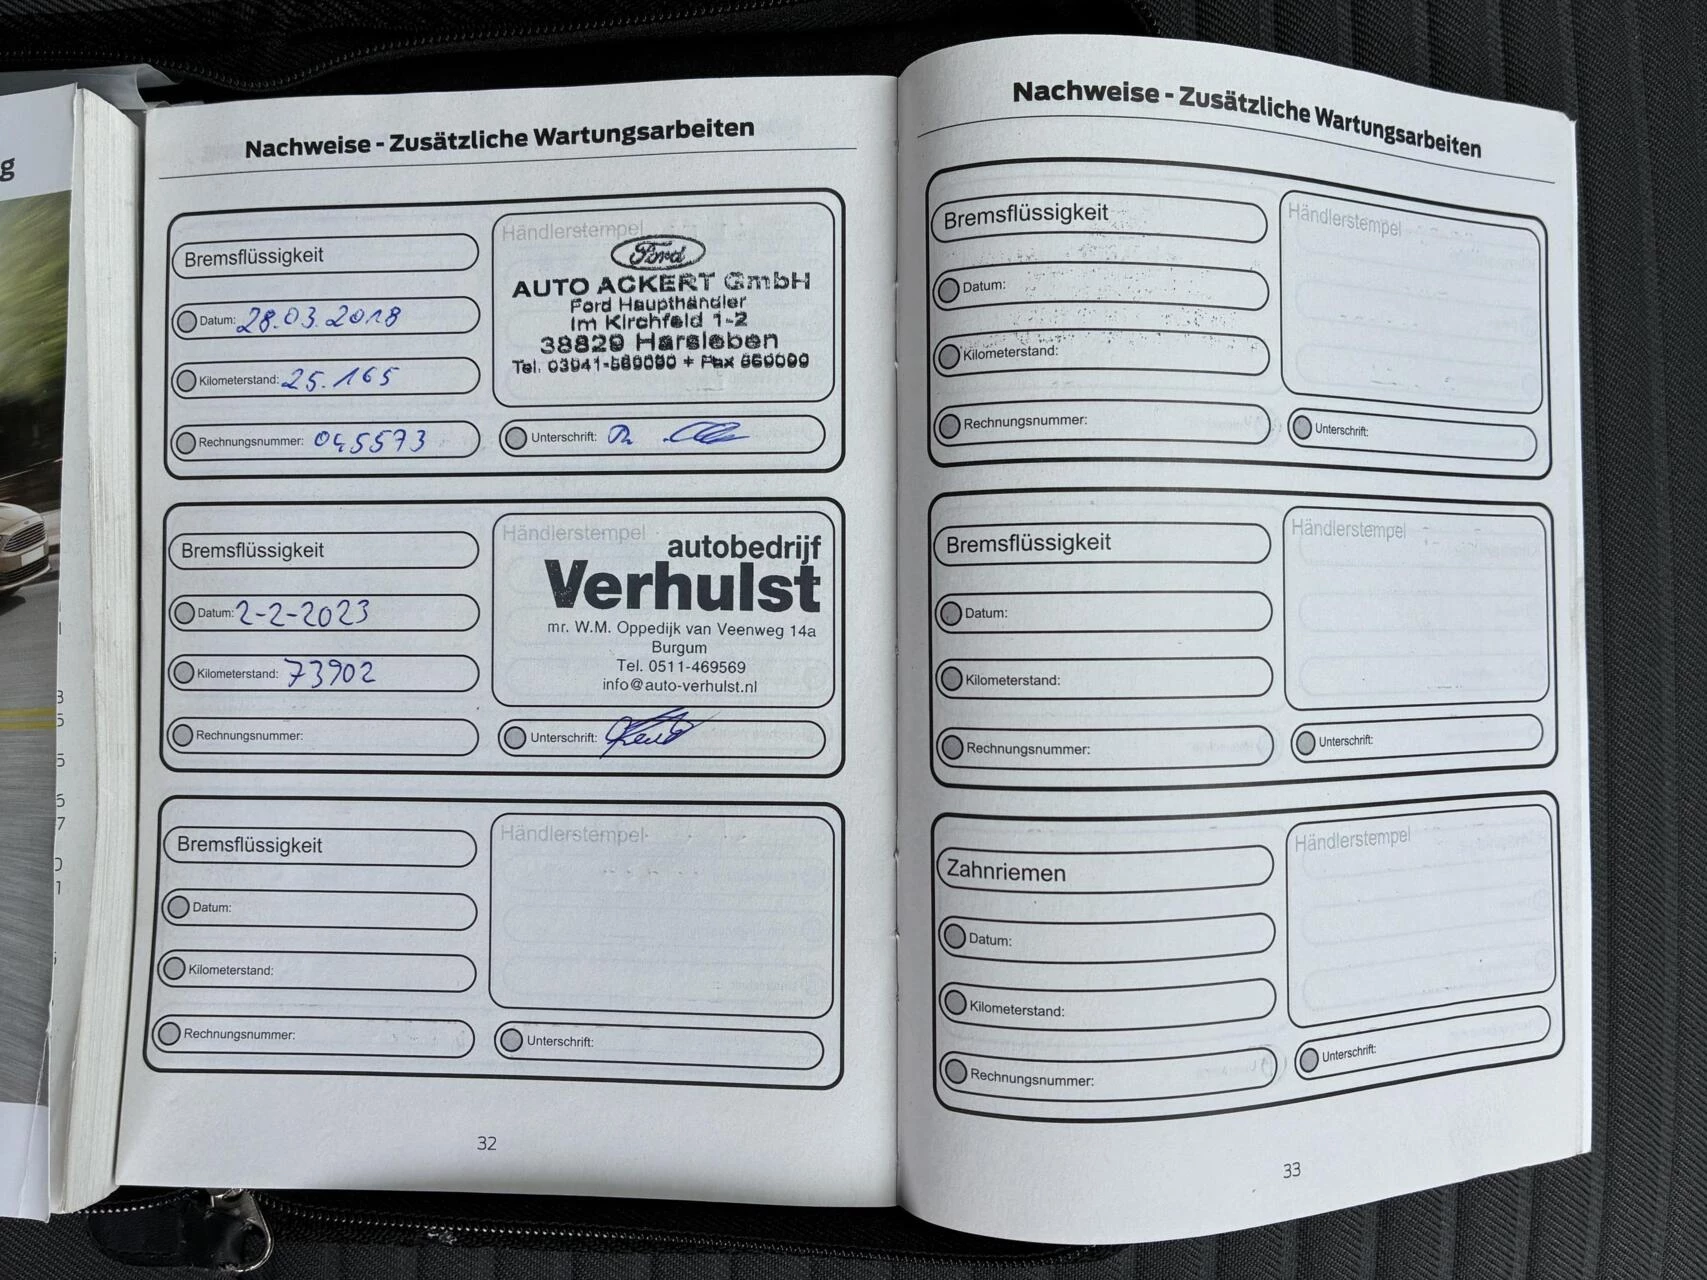 g
3
5
5
5
7
0
1
Nachweise - Zusätzliche Wartungsarbeiten
Bremsflüssigkeit
Datum: 28.03.2018
Kilometerstand: 25.165
Rechnungsnummer: 045573
Händlerstempel
Ford
AUTO ACKERT GmbH
Ford Haupthändler
Im Kirchfeld 1-2
38829 Harsleben
Tel. 03941-569090 + Fax 569099
Unterschrift:
Bremsflüssigkeit
Datum: 2-2-2023
Kilometerstand: 73902
Rechnungsnummer:
Händlerstempel
autobedrijf
Verhulst
mr. W.M. Oppedijk van Veenweg 14a
Burgum
Tel. 0511-469569
info@auto-verhulst.nl
Unterschrift:
Bremsflüssigkeit
Datum:
Kilometerstand:
Rechnungsnummer:
Händlerstempel
Unterschrift:
32
Nachweise - Zusätzliche Wartungsarbeiten
Bremsflüssigkeit
Datum:
Kilometerstand:
Rechnungsnummer:
Händlerstempel
Unterschrift:
Bremsflüssigkeit
Datum:
Kilometerstand:
Rechnungsnummer:
Händlerstempel
Unterschrift:
Zahnriemen
Datum:
Kilometerstand:
Rechnungsnummer:
Händlerstempel
Unterschrift:
33